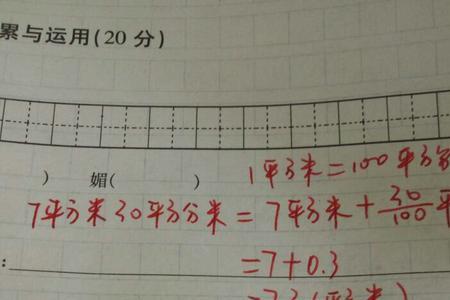 累与运用(20 分)
) 媚( )
1平方米=100平方分
7平方米30平方分米=7平方米+30/100平
:
=7+0.3
=7.3(平方米)